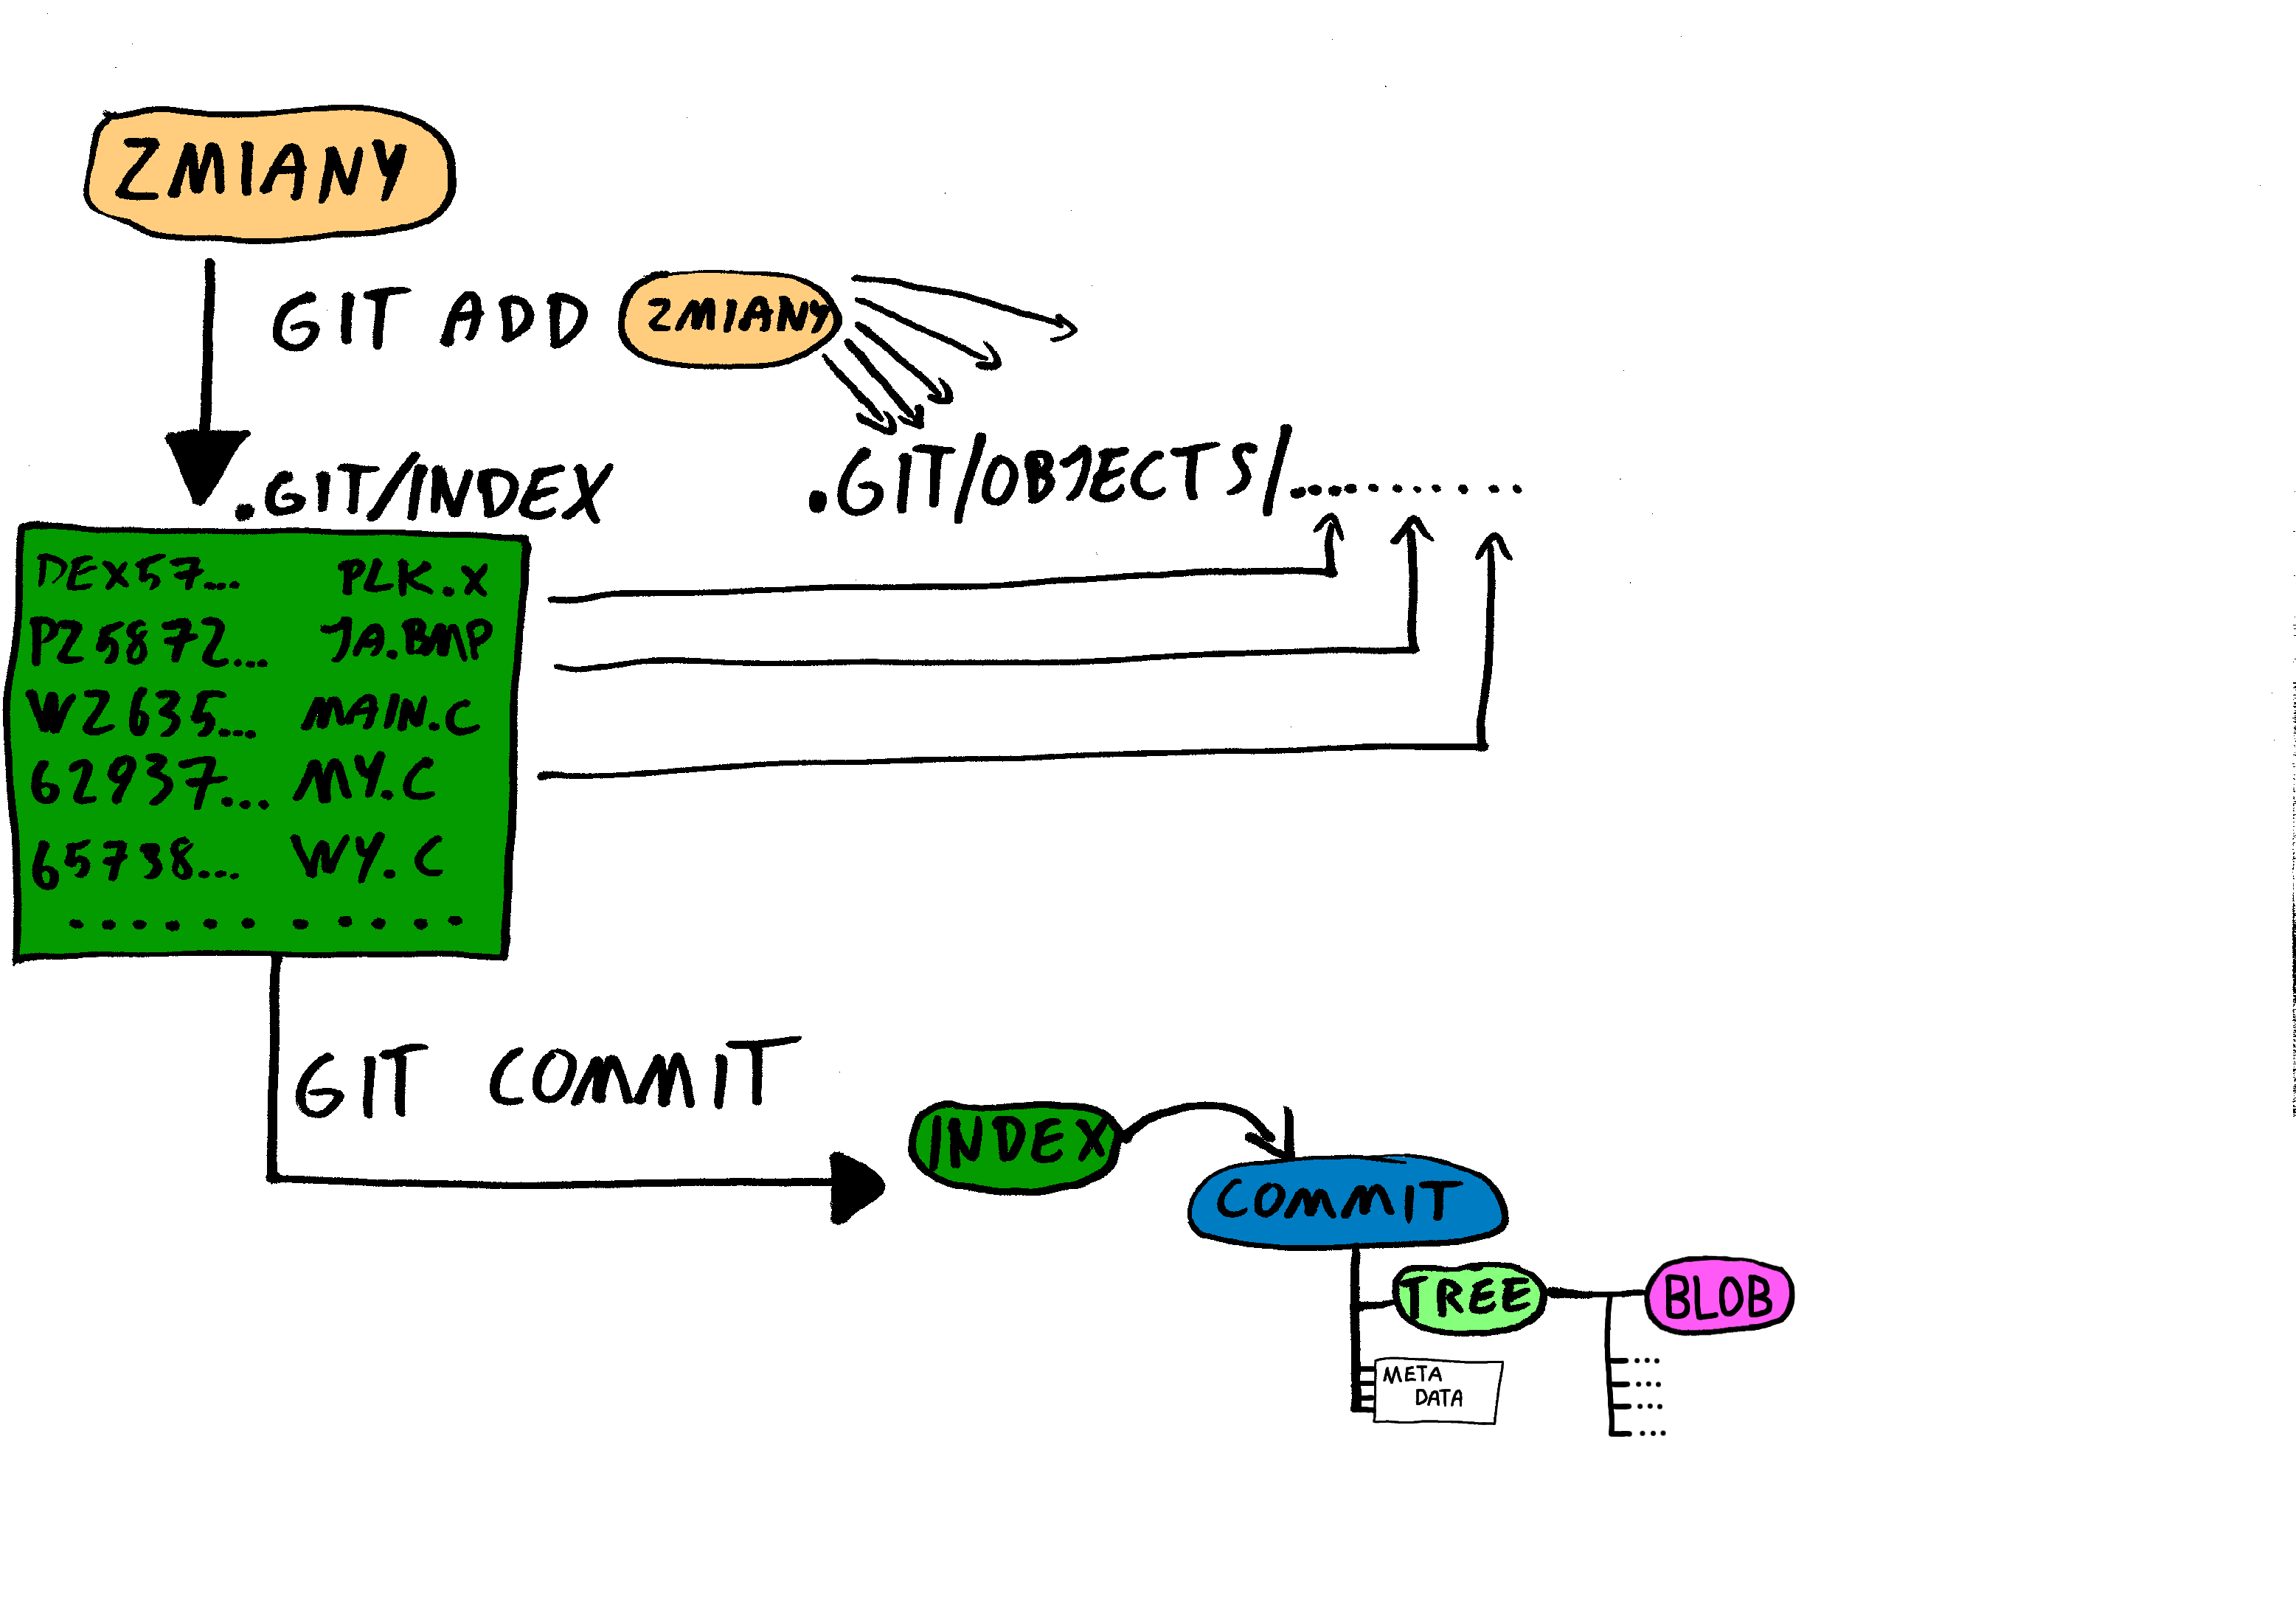 ZMIANY
GIT ADD ZMIANY
.GIT/INDEX
.GIT/OBJECTS/...............
DEX57... PLK.X
PZ5872... JA.BMP
WZ635... MAIN.C
62937... MY.C
65738... WY.C
...........
GIT COMMIT
INDEX
COMMIT
TREE
BLOB
META
DATA
...
...
...
...